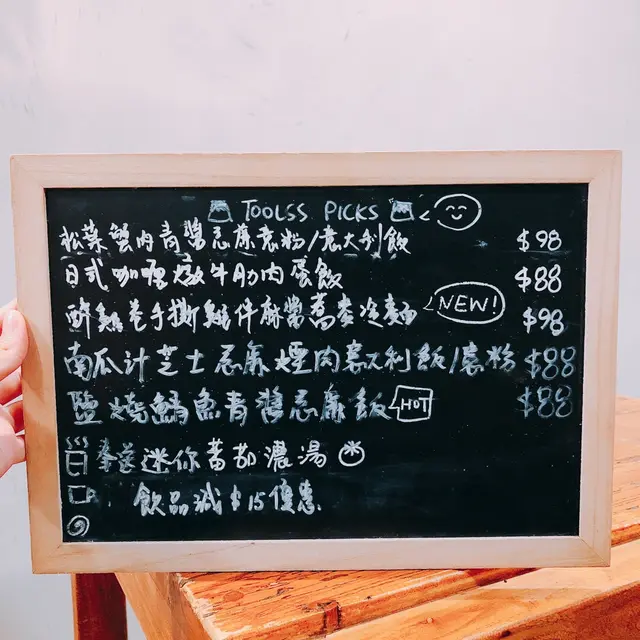 TOOLSS PICKS
松葉蟹肉青醬忌廉意粉/意大利飯 $98
日式咖喱燉牛肋肉蛋飯 $88
醉雞卷手撕雞伴麻醬蕎麥冷麵 NEW! $98
南瓜汁芝士忌廉煙肉意大利飯/意粉 $88
鹽燒鯖魚青醬忌廉飯 HOT $88
迷你蕃茄濃湯
飲品減$15優惠